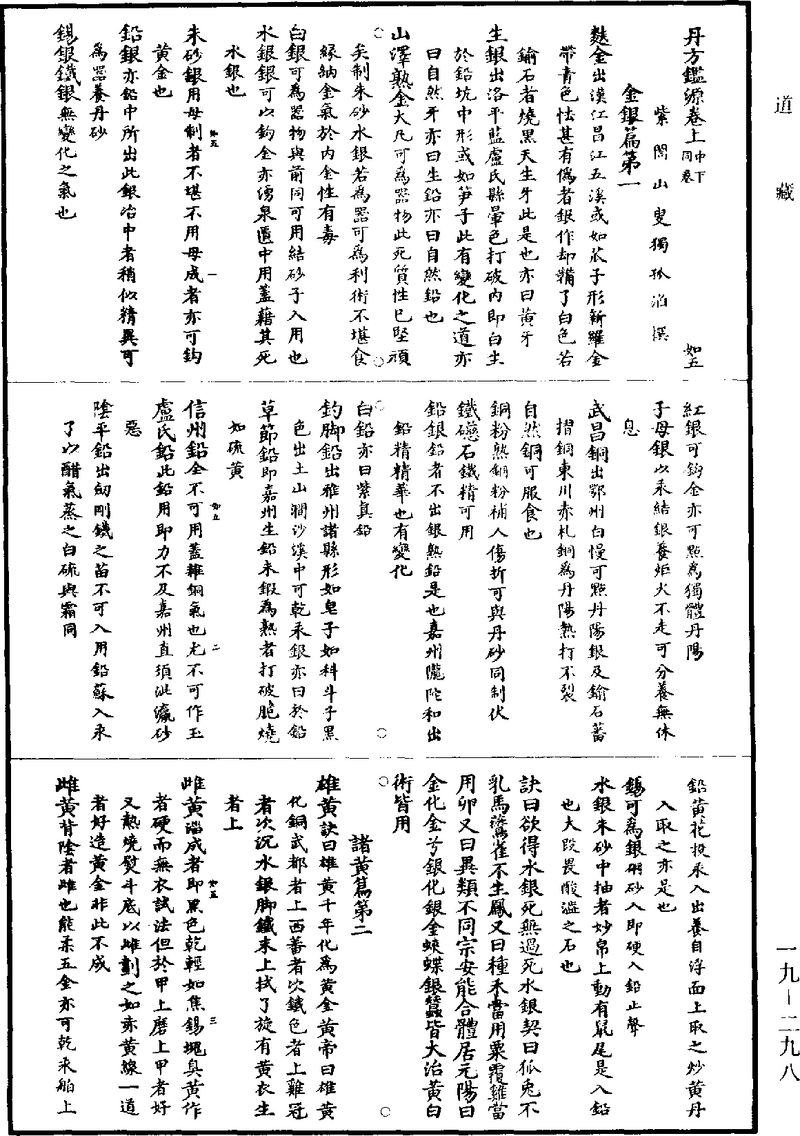 道藏
丹方鑑源卷上中下同卷 如五
紫閣山叟獨孤滔撰
金銀篇第一
麩金出漢江昌江五溪或如苽子形新羅金
帶青色怯甚有偽者銀作却𩏩了白色若
鍮石者燒黑天生牙此是也亦曰黃牙
生銀出洛平藍盧氏縣暈色打破内即白生
於鉛坑中形或如笋子此有變化之道亦
曰自然牙亦曰生鉛亦曰自然鉛也
山澤熟金大凡可為器物此死質性巳堅頑
矣制朱砂水銀若為器可為利術不堪食
緣納金氣於内金性有毒
白銀可為器物與前同可用結砂子入用也
水銀銀可以鈎金亦湧泉匱中用蓋藉其死
水銀也
朱砂銀用母制者不堪不用母成者亦可鈎
黃金也
鉛銀亦鉛中所出此銀冶中者稍似精異可
為器養丹砂
錫銀鐵銀無變化之氣也
如五 一
紅銀可鈎金亦可點為獨體丹陽
子母銀以汞結銀養炬火不走可分養無休
息
武昌銅出鄂州白慢可點丹陽銀及鍮石蓄
㨨銅東川赤札銅為丹陽熱打不裂
自然銅可服食也
銅粉熟銅粉補人傷折可與丹砂同制伏
鐵礠石鐵精可用
鉛銀鉛者不出銀熟鉛是也嘉州隴陀和出
鉛精精華也有變化
白鉛亦曰紫真鉛
釣脚鉛出雅州諸縣形如皂子如科斗子黑
色出土山澗沙溪中可乾汞銀亦曰於鉛
草節鉛即嘉州生鉛未鍛為熟者打破脆燒
如硫黃
信州鉛全不可用蓋雜銅氣也尤不可作玉
盧氏鉛此鉛用即力不及嘉州直須泚瀛砂
惡
陰平鉛出劒剛鐵之苗不可入用鉛蘇入汞
了以醋氣蒸之白硫與霜同
如五 二
鉛黃花投汞入出養自浮面上取之炒黃丹
入取之亦是也
錫可為銀硇砂入即硬入鉛止聲
水銀朱砂中抽者妙帛上動有鼠尾是入鉛
也大段畏酸澁之石也
訣曰欲得水銀死無過死水銀契曰狐兔不
乳馬鸑雀不生鳳又曰種禾當用粟覆雞當
用卵又曰異類不同宗安能合體居元陽曰
金化金兮銀化銀金蛺蝶銀蠶皆大治黃白
術皆用
諸黃篇第二
雄黃訣曰雄黃千年化為黃金黃帝曰雄黃
化銅武都者上西蕃者次鐵色者上雞冠
者次沉水銀脚鐵末上拭了旋有黃衣生
者上
雌黃淄成者即黑色乾輕如焦錫塊臭黃作
者硬而無衣試法但於甲上磨上甲者好
又熱燒熨斗底以雌劃之如赤黃線一道
者好造黃金非此不成
雌黃背陰者雌也能柔五金亦可乾汞船上
如五 三
一九－二九八